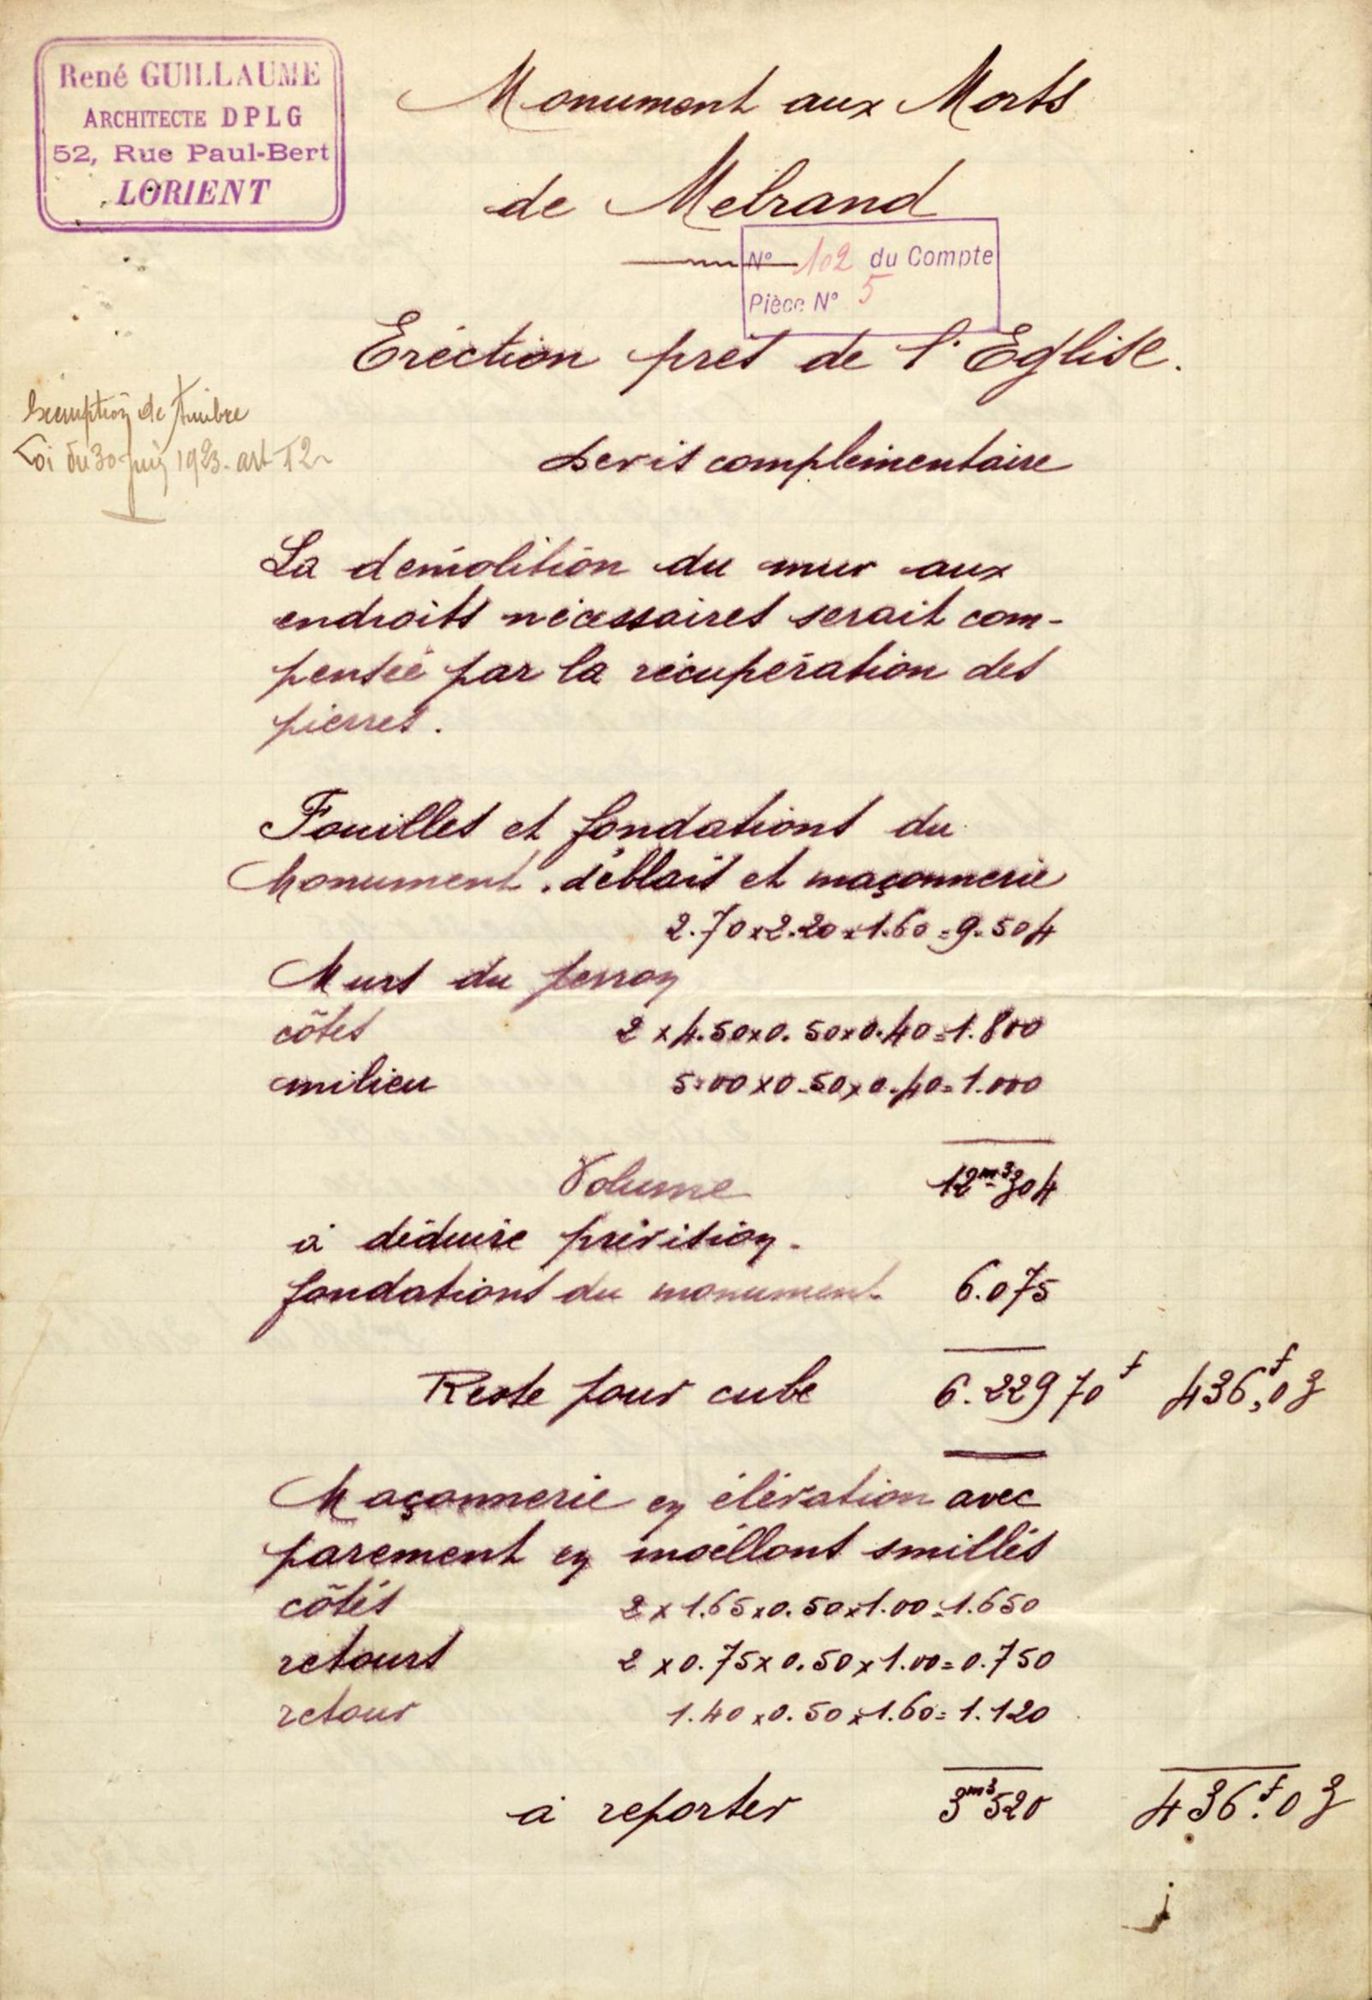 René GUILLAUME
ARCHITECTE DPLG
52, Rue Paul-Bert
LORIENT
Monument aux Morts
de Melrand
N° 102 du Compte
Pièce N° 5
Eréction près de l'Eglise.
Exemption de timbre
Loi du 30 juin 1923. art 12
Devis complémentaire
La démolition du mur aux
endroits nécessaires serait com-
pensée par la récupération des
pierres.
Fouilles et fondations du
Monument. déblais et maçonnerie
2.70 x 2.20 x 1.60 = 9.504
Murs du perron
côtés 2 x 4.50 x 0.50 x 0.40 = 1.800
milieu 5.00 x 0.50 x 0.40 = 1.000
Volume 12m3304
à déduire prévision.
fondations du monument. 6.075
Reste pour cube 6.229 70f 436,f03
Maçonnerie en élévation avec
parement en moëllons smillés
côtés 2 x 1.65 x 0.50 x 1.00 = 1.650
retours 2 x 0.75 x 0.50 x 1.00 = 0.750
retour 1.40 x 0.50 x 1.60 = 1.120
à reporter 3m3520 436.f03